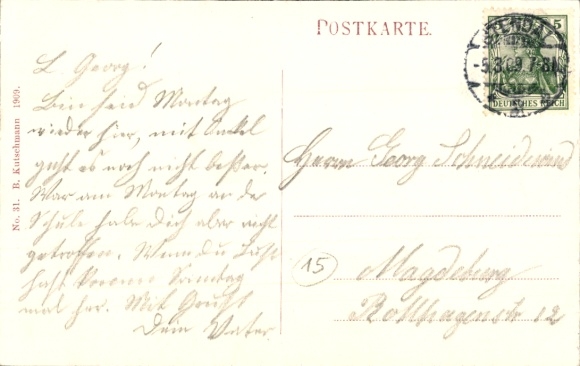 POSTKARTE.
STENDAL
-5.3.09.7-8V.
5
DEUTSCHES REICH
L. Georg!
Bin seid Montag
wieder hier, mit Onkel
geht es noch nicht beßer.
War am Montag an der
Schule habe Dich aber nicht
getroffen. Wenn du Lust
hast komm Samstag
mal her. Mit Gruß
Dein Vater.
Herrn Georg Schneidewind
15
Magdeburg
Rollhagenstr 12
No. 31. B. Kutschmann 1909.